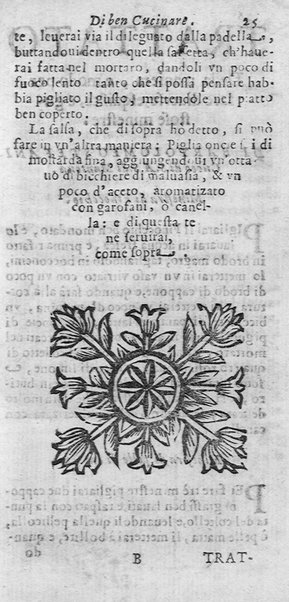 Di ben Cucinare. 25
te, leuerai via il dileguato dalla padella,
buttandoui dentro quella salsetta, ch'haue-
rai fatta nel mortaro, dandoli vn poco di
fuoco lento tanto che si possa pensare hab-
bia pigliato il gusto, mettendole nel piatto
ben coperto:
La salsa, che di sopra ho detto, si può
fare in vn'altra maniera; Piglia once di
mostarda fina, aggiungendoui vn'otta
uo di bicchiere di maluasia, & vn
poco d'aceto, aromatizato
con garofani, ò canel-
la: e di questa te
ne seruirai,
come sopra.
B TRAT-